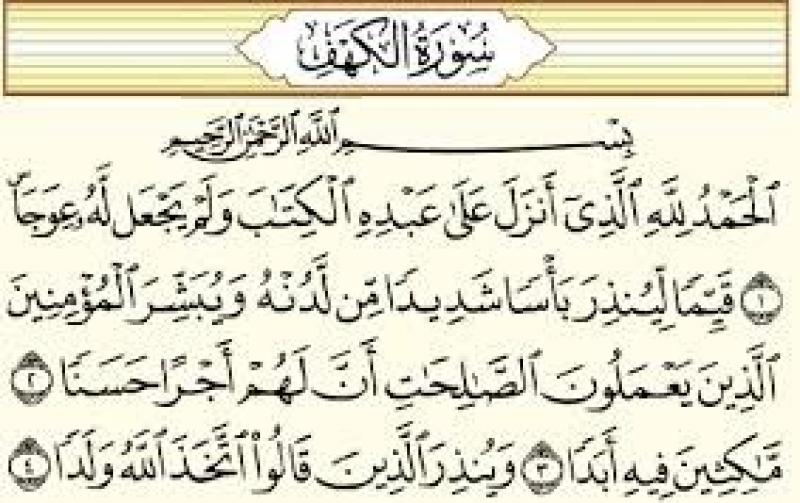 سُورَةُ الكَهْفِ
بِسْمِ ٱللَّهِ ٱلرَّحْمَٰنِ ٱلرَّحِيمِ
ٱلْحَمْدُ لِلَّهِ ٱلَّذِىٓ أَنزَلَ عَلَىٰ عَبْدِهِ ٱلْكِتَٰبَ وَلَمْ يَجْعَل لَّهُۥ عِوَجَاۜ
١ قَيِّمًا لِّيُنذِرَ بَأْسًا شَدِيدًا مِّن لَّدُنْهُ وَيُبَشِّرَ ٱلْمُؤْمِنِينَ
ٱلَّذِينَ يَعْمَلُونَ ٱلصَّٰلِحَٰتِ أَنَّ لَهُمْ أَجْرًا حَسَنًا ٢
مَّٰكِثِينَ فِيهِ أَبَدًا ٣ وَيُنذِرَ ٱلَّذِينَ قَالُوا۟ ٱتَّخَذَ ٱللَّهُ وَلَدًا ٤